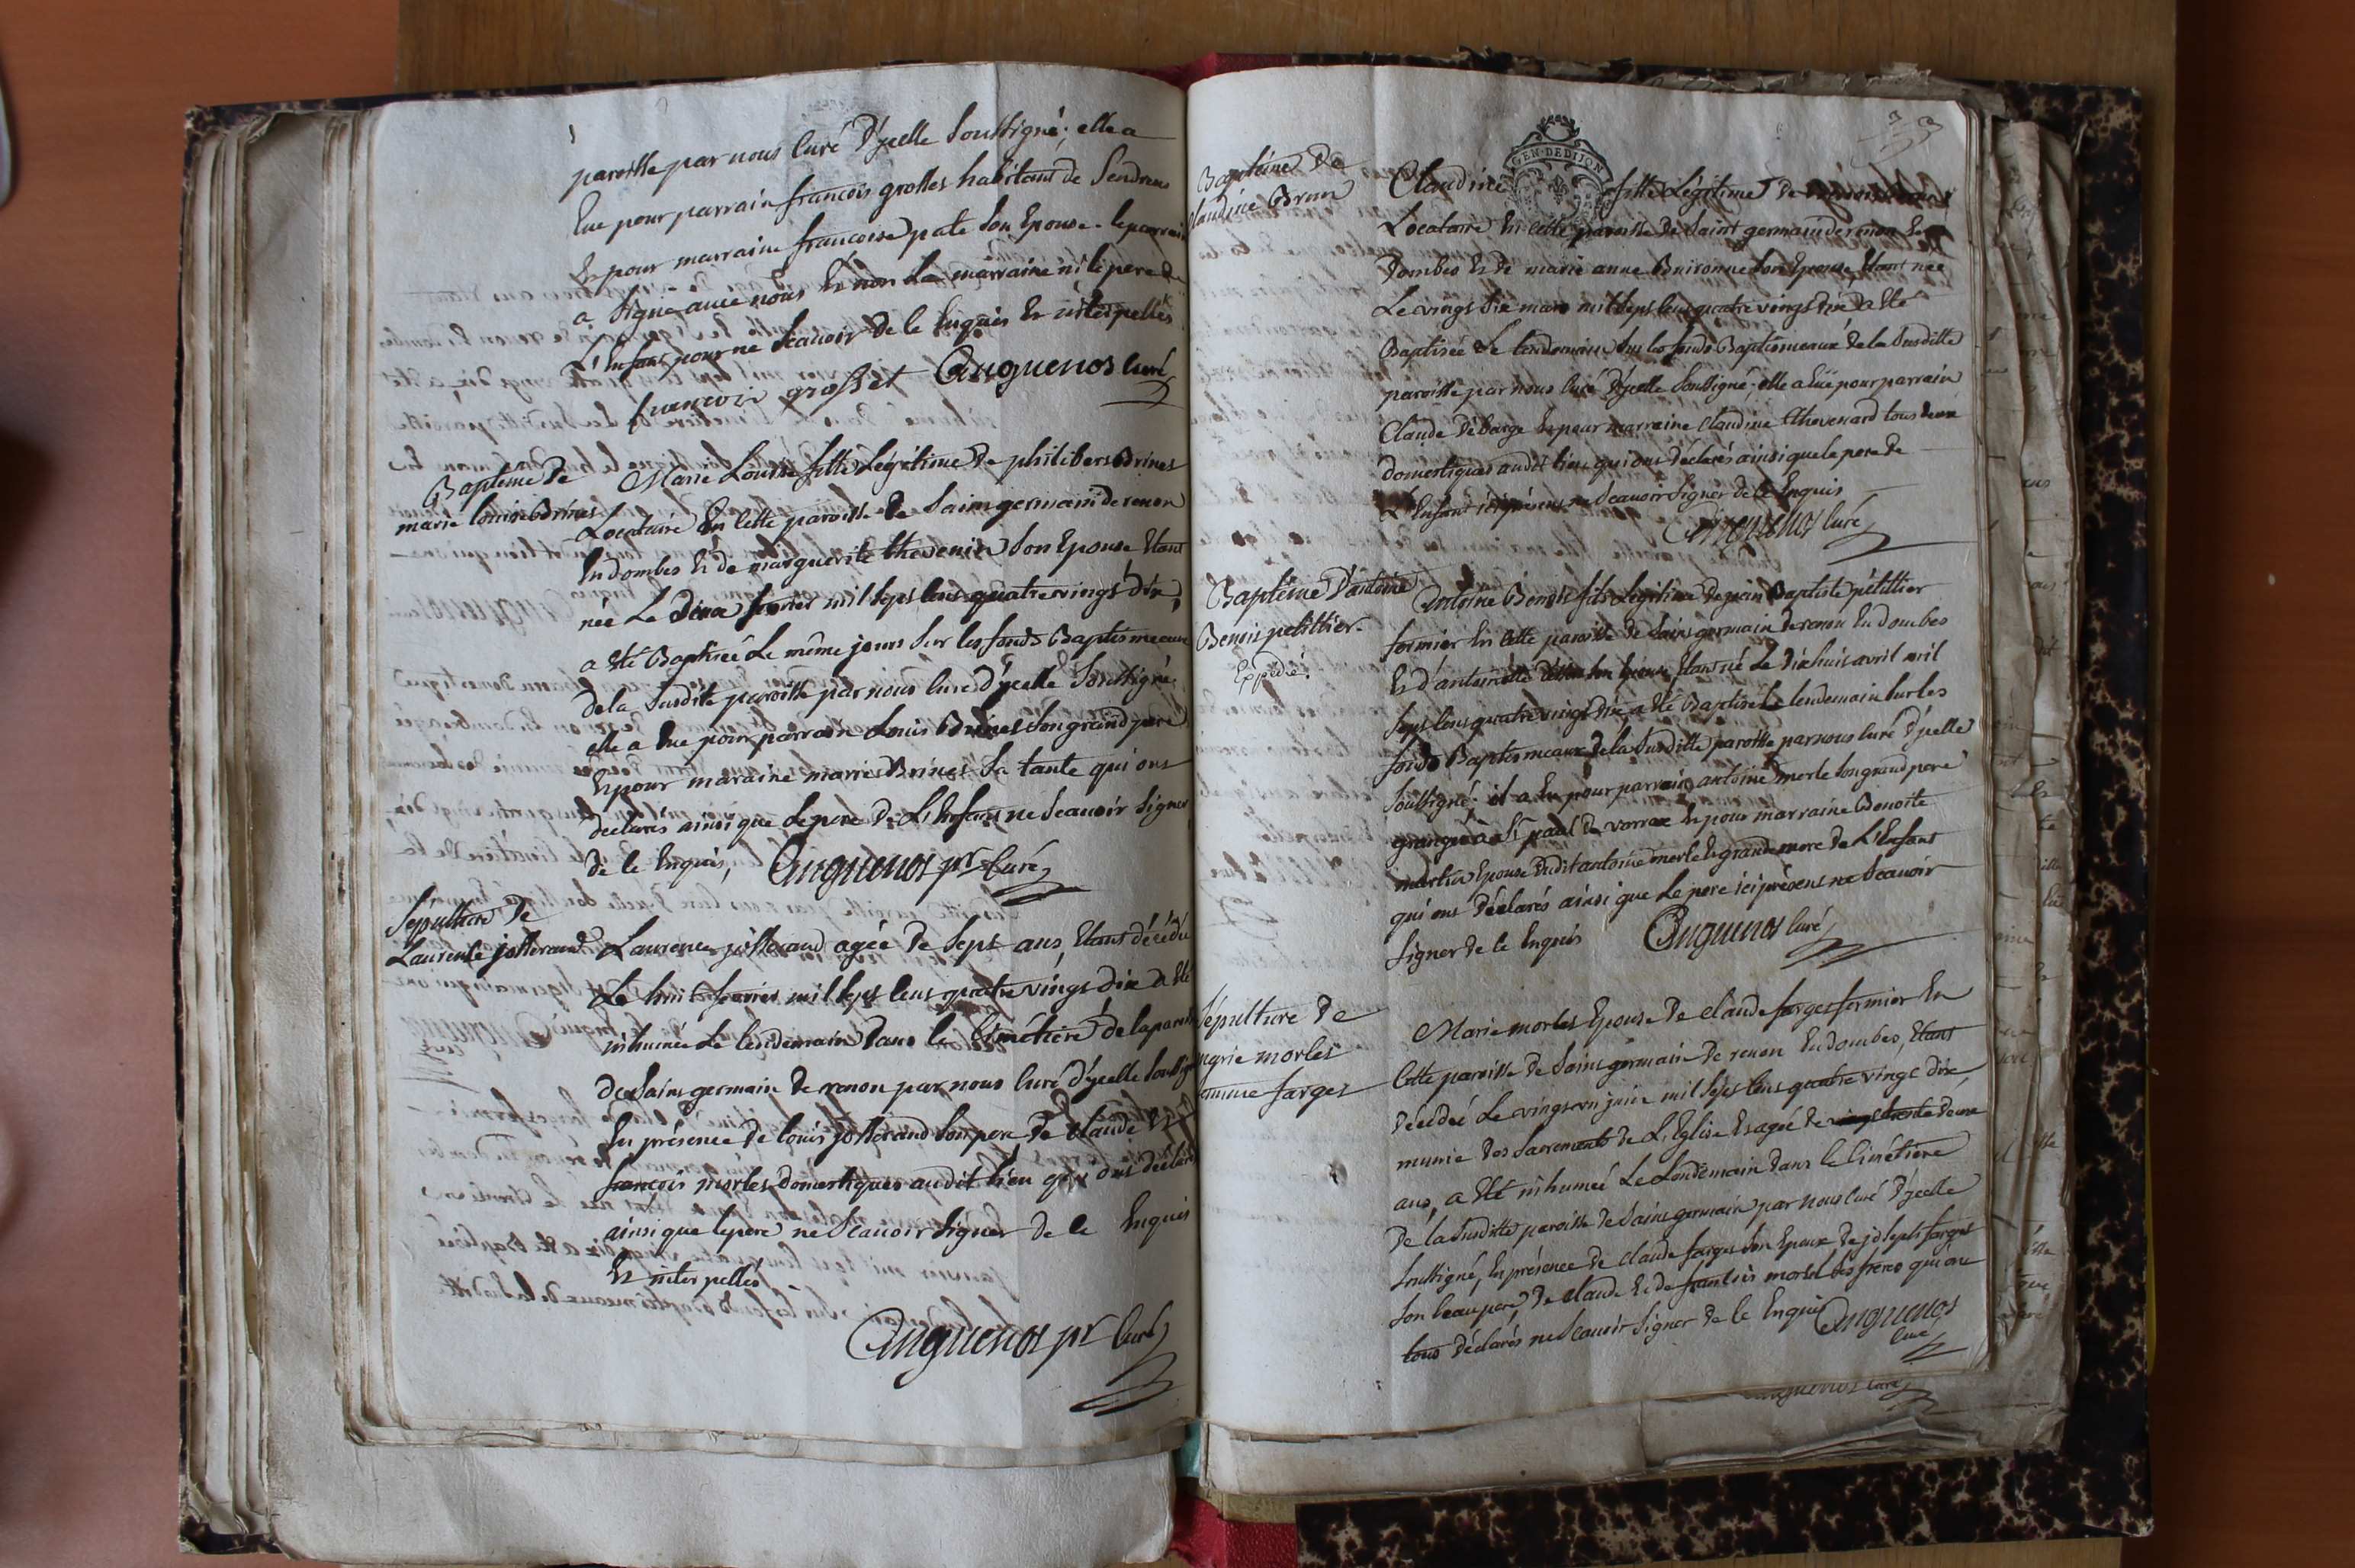 paroisse par nous Curé d'ycelle Soussigné; elle a
Eue pour parrain françois grosset habitant de Sendrens
Et pour marraine francoise pate Son Epouse. le parrain
a Signé avec nous Et non La marraine ni le pere de
L'Enfant pour ne Scauoir de ce Enquis Et interpellés
francoi grosset Anguenos Curé
Baptême De
marie louise Brines
Marie Louise fille Légitime De philibert Brines
Locataire En cette paroisse De Saint germain de renon
En dombes Et de marguerite thevenin Son Epouse Etant
née Le Deux fevrier mil sept cens quatre vingt dix,
a été Baptisée Le même jour Sur les fonds Baptismeaux
de la Susdite paroisse par nous Curé d'ycelle Soussigné
elle a Eue pour parrain Louis Brines Son grand pere
Et pour maraine marie Brines Sa tante qui ont
declarés ainsi que Le pere De L'Enfant ne Scauoir Signer
de ce Enquis, Anguenos ptr Curé
Sépulture De
Laurence josserand
Laurence josserand agée De Sept ans, Etant décédée
Le huit fevrier mil Sept Cens quatre vingt dix a été
inhumée Le lendemain Dans le Cimétiere de la paroisse
de Saint germain de renon par nous Curé d'ycelle Soussigné
En présence de louis josserand Son pere, De Claude Et
francois morles Domestiques audit lieu qui ont déclaré
ainsi que le pere ne Scauoir Signer de ce Enquis
Et interpellés
Anguenos ptr Curé
GEN. DE DIJON
Baptême De
Claudine Brun
Claudine fille Légitime De
Locataire En cette paroisse De Saint germain de renon En
Dombes Et De marie anne Buironne Son Epouse, Etant née
Le vingt Six mars mil Sept Cens quatre vingt dix a Eté
Baptisée Le Lendemain Sur les fonds Baptismeaux de la Susditte
paroisse par nous Curé D'ycelle Soussigné; elle a Eüe pour parrain
Claude Debarge Et pour marraine Claudine thevenard tous deux
domestiques audit lieu qui ont déclarés ainsi que le pere De
L'Enfant ici présent ne Scauoir Signer de ce Enquis
Anguenos Curé
Baptême D'antoine
Benoit petittier.
Expédié.
Antoine Benoit fils Légitime De jean Baptiste petittier
fermier En cette paroisse De Saint germain de renon En dombes
Et d'antoinette Son Epouse, Etant né Le Dix huit avril mil
Sept Cens quatre vingt dix, a été Baptisé Le lendemain Sur les
fonds Baptismeaux De la Susditte paroisse par nous Curé D'ycelle
Soussigné; il a Eu pour parrain antoine merle Son grand pere
granger à St paul de varrax Et pour marraine Benoite
Epouse dudit antoine merle Et grande mere de L'Enfant
qui ont Déclarés ainsi que Le pere ici présent ne Scauoir
Signer de ce Enquis Anguenos Curé
Sépulture De
marie morles
femme farges
Marie morles Epouse De claude farges fermier En
Cette paroisse de Saint germain De renon En dombes, Etant
décédée Le vingt un juin mil Sept Cens quatre vingt dix,
munie Des Sacrements de L'Eglise Et agée de trente deux
ans, a Eté inhumée Le Lendemain Dans le Cimétiere
De la Susditte paroisse de Saint germain par nous Curé D'ycelle
Soussigné, En présence de claude farges Son Epoux De joseph farges
Son beau pere, De claude Et de francois morles Ses freres qui ont
tous Déclarés ne Scauoir Signer de ce Enquis Anguenos
Curé
Anguenos Curé